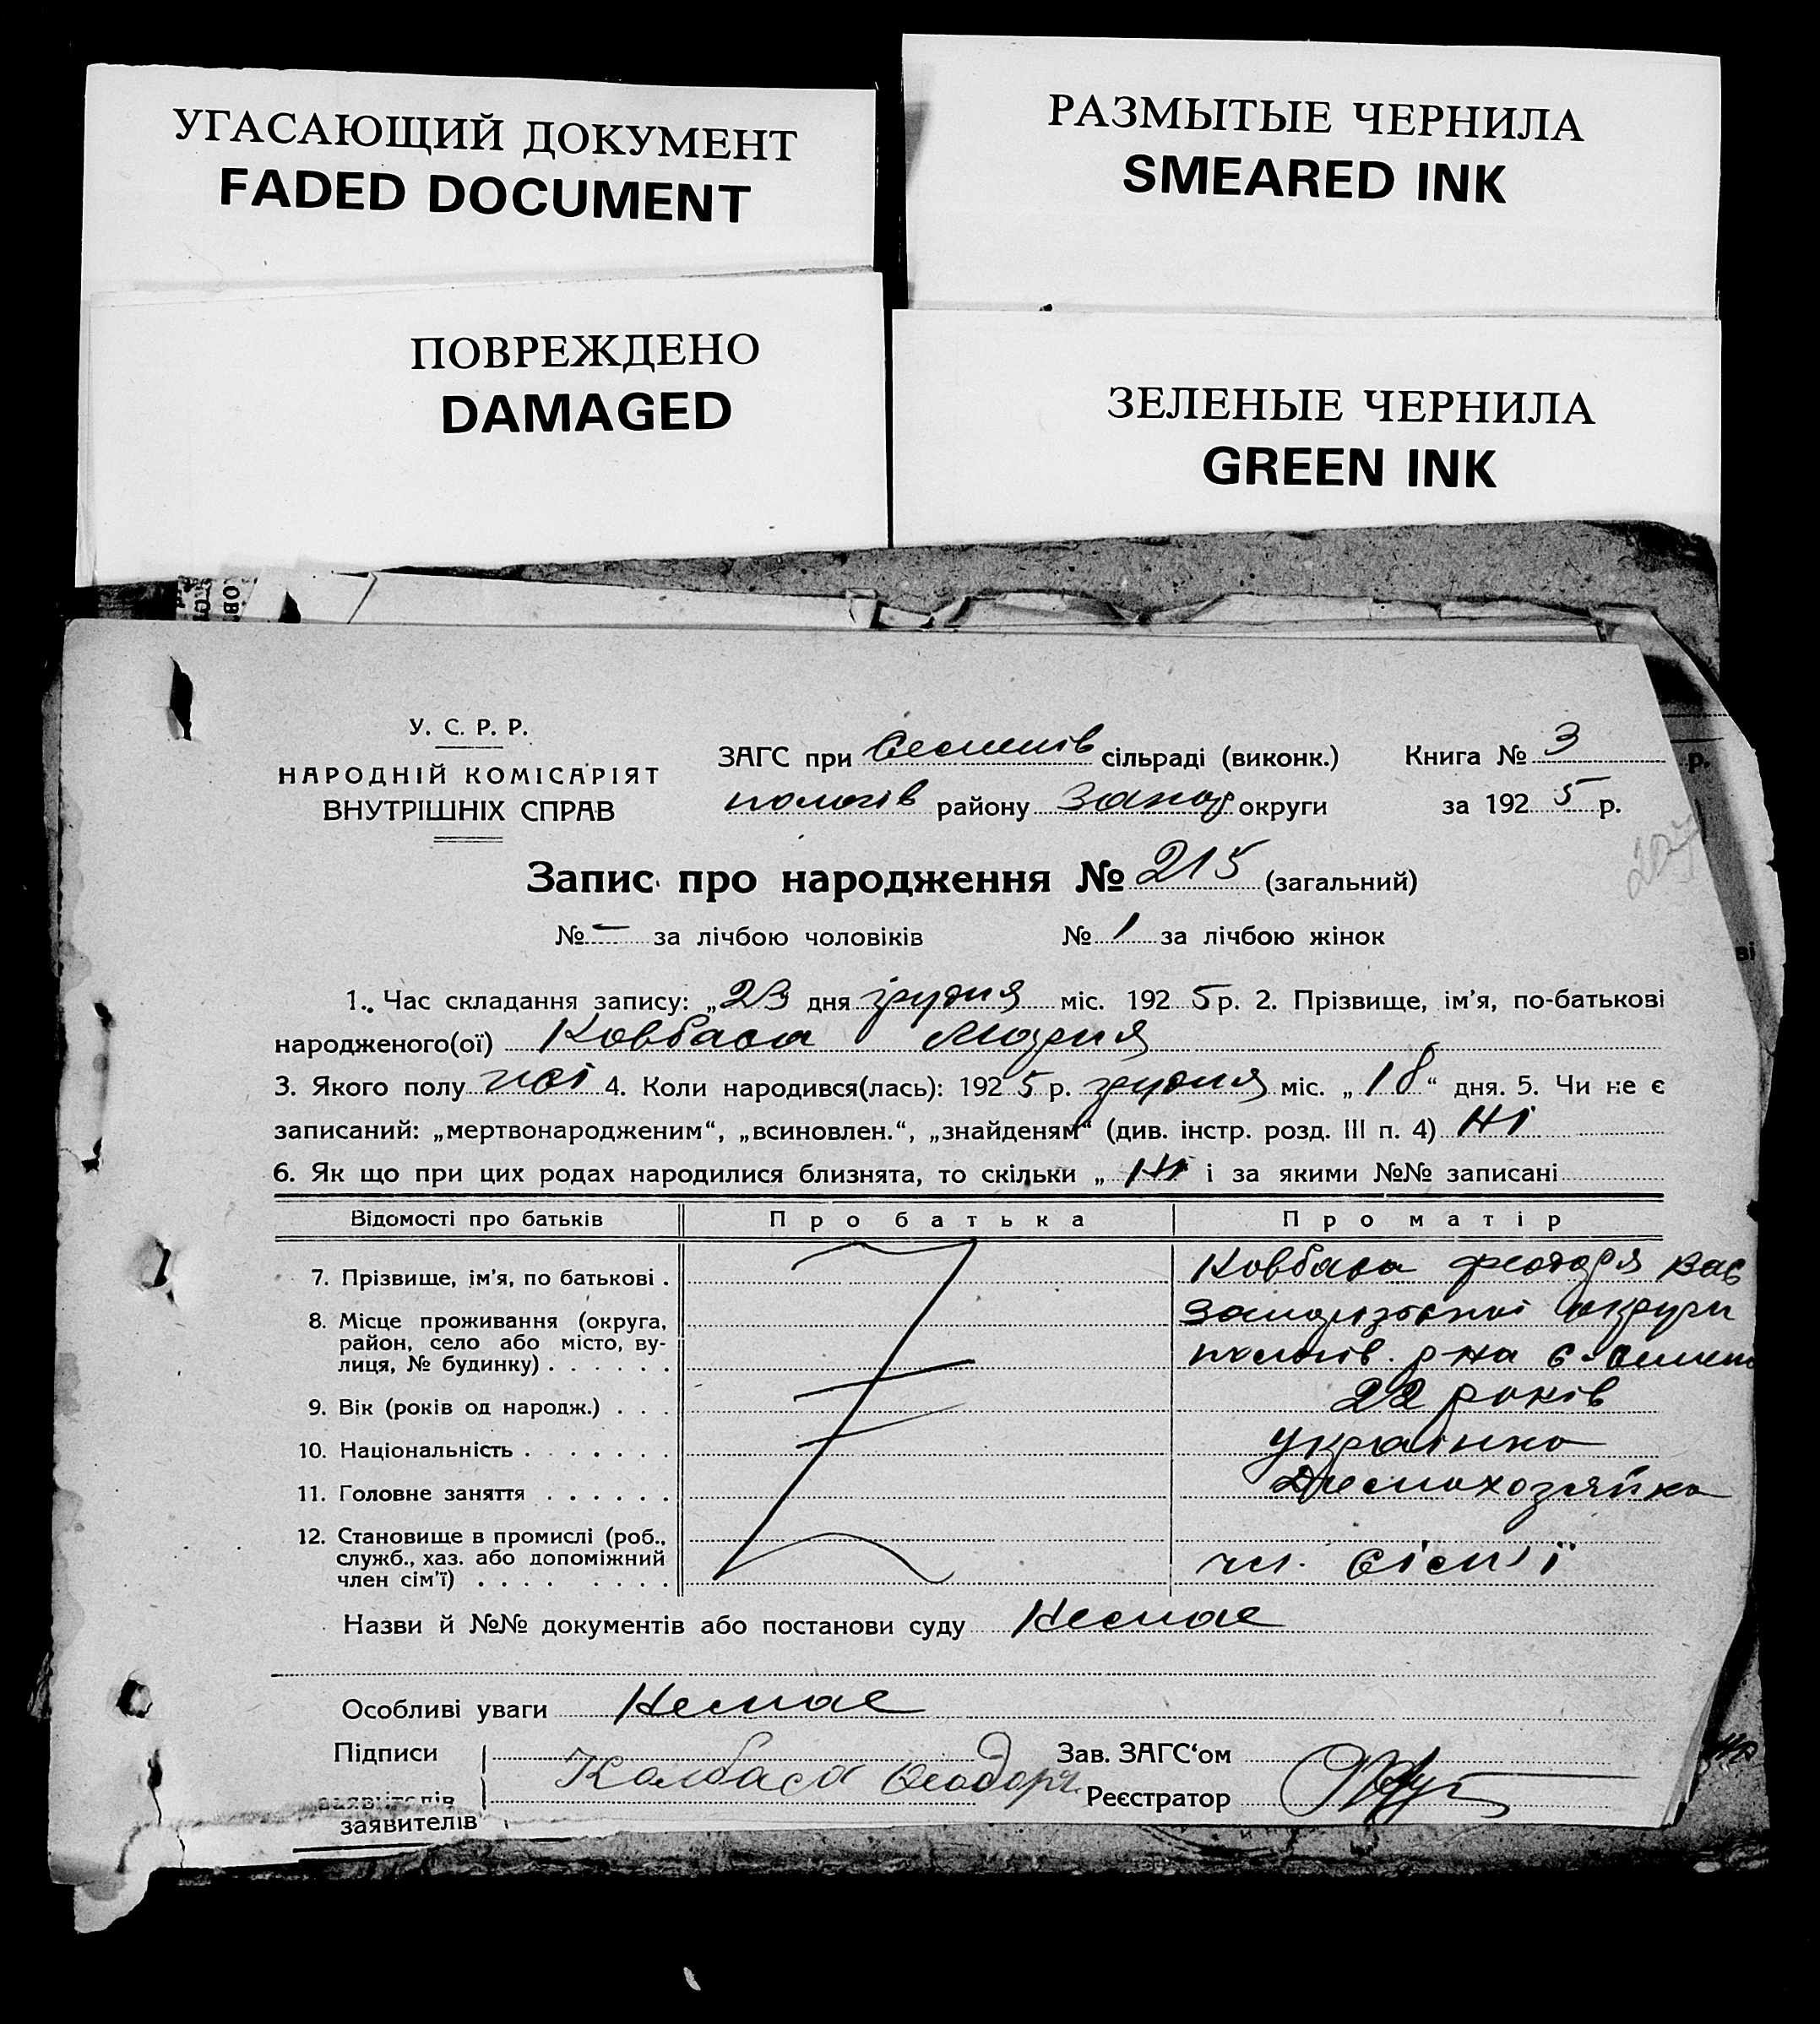 УГАСАЮЩИЙ ДОКУМЕНТ
FADED DOCUMENT
РАЗМЫТЫЕ ЧЕРНИЛА
SMEARED INK
ПОВРЕЖДЕНО
DAMAGED
ЗЕЛЕНЫЕ ЧЕРНИЛА
GREEN INK
У. С. Р. Р.
НАРОДНІЙ КОМІСАРІЯТ
ВНУТРІШНІХ СПРАВ
ЗАГС при сільраді (виконк.) Книга № 3
пологів району Запор округи за 1925 р.
Запис про народження № 215 (загальний)
№ — за лічбою чоловіків № 1 за лічбою жінок
1. Час складання запису: „23 дня грудня міс. 1925 р. 2. Прізвище, ім'я, по-батькові
народженого(ої) Ковбаса Мария
3. Якого полу жоі 4. Коли народився(лась): 1925 р. грудня міс. „18“ дня. 5. Чи не є
записаний: „мертвонародженим“, „всиновлен.“, „знайденям“ (див. інстр. розд. III п. 4) Ні
6. Як що при цих родах народилися близнята, то скільки „ Ні і за якими №№ записані
Відомості про батьків Про батька Про матір
7. Прізвище, ім'я, по батькові . Ковбаса Феодоря Вас
8. Місце проживання (округа, район, село або місто, вулиця, № будинку) . . . . . . Запорізької округи
пологів. р на
9. Вік (років од народж.) . . . 22 років
10. Національність . . . . . . . українка
11. Головне заняття . . . . . . Домохозяйка
12. Становище в промислі (роб., служб., хаз. або допоміжний член сім'ї) . . . . . . . . чл. сієм'ї
Назви й №№ документів або постанови суду Немае
Особливі уваги Немае
Підписи Зав. ЗАГС'ом
Колбаса Феодоря Реєстратор
заявителів
заявителів